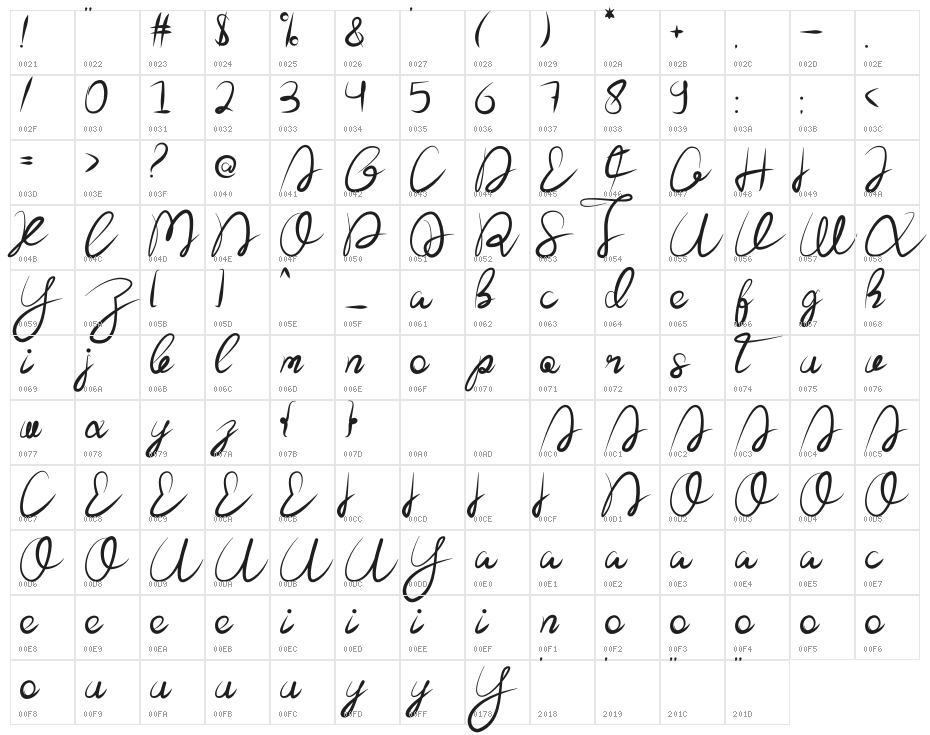 ! " # $ % & ' ( ) * + , - .
0021 0022 0023 0024 0025 0026 0027 0028 0029 002A 002B 002C 002D 002E
/ 0 1 2 3 4 5 6 7 8 9 : ; <
002F 0030 0031 0032 0033 0034 0035 0036 0037 0038 0039 003A 003B 003C
= > ? @ A B C D E F G H I J
003D 003E 003F 0040 0041 0042 0043 0044 0045 0046 0047 0048 0049 004A
K L M N O P Q R S T U V W X
004B 004C 004D 004E 004F 0050 0051 0052 0053 0054 0055 0056 0057 0058
Y Z [ ] ^ _ a b c d e f g h
0059 005A 005B 005D 005E 005F 0061 0062 0063 0064 0065 0066 0067 0068
i j k l m n o p q r s t u v
0069 006A 006B 006C 006D 006E 006F 0070 0071 0072 0073 0074 0075 0076
w x y z { } A A A A A A
0077 0078 0079 007A 007B 007D 00A0 00AD 00C0 00C1 00C2 00C3 00C4 00C5
C E E E E I I I I N O O O O
00C7 00C8 00C9 00CA 00CB 00CC 00CD 00CE 00CF 00D1 00D2 00D3 00D4 00D5
O O U U U U Y a a a a a a c
00D6 00D8 00D9 00DA 00DB 00DC 00DD 00E0 00E1 00E2 00E3 00E4 00E5 00E7
e e e e i i i i n o o o o o
00E8 00E9 00EA 00EB 00EC 00ED 00EE 00EF 00F1 00F2 00F3 00F4 00F5 00F6
o u u u u y y Y ' ' " "
00F8 00F9 00FA 00FB 00FC 00FD 00FF 0178 2018 2019 201C 201D